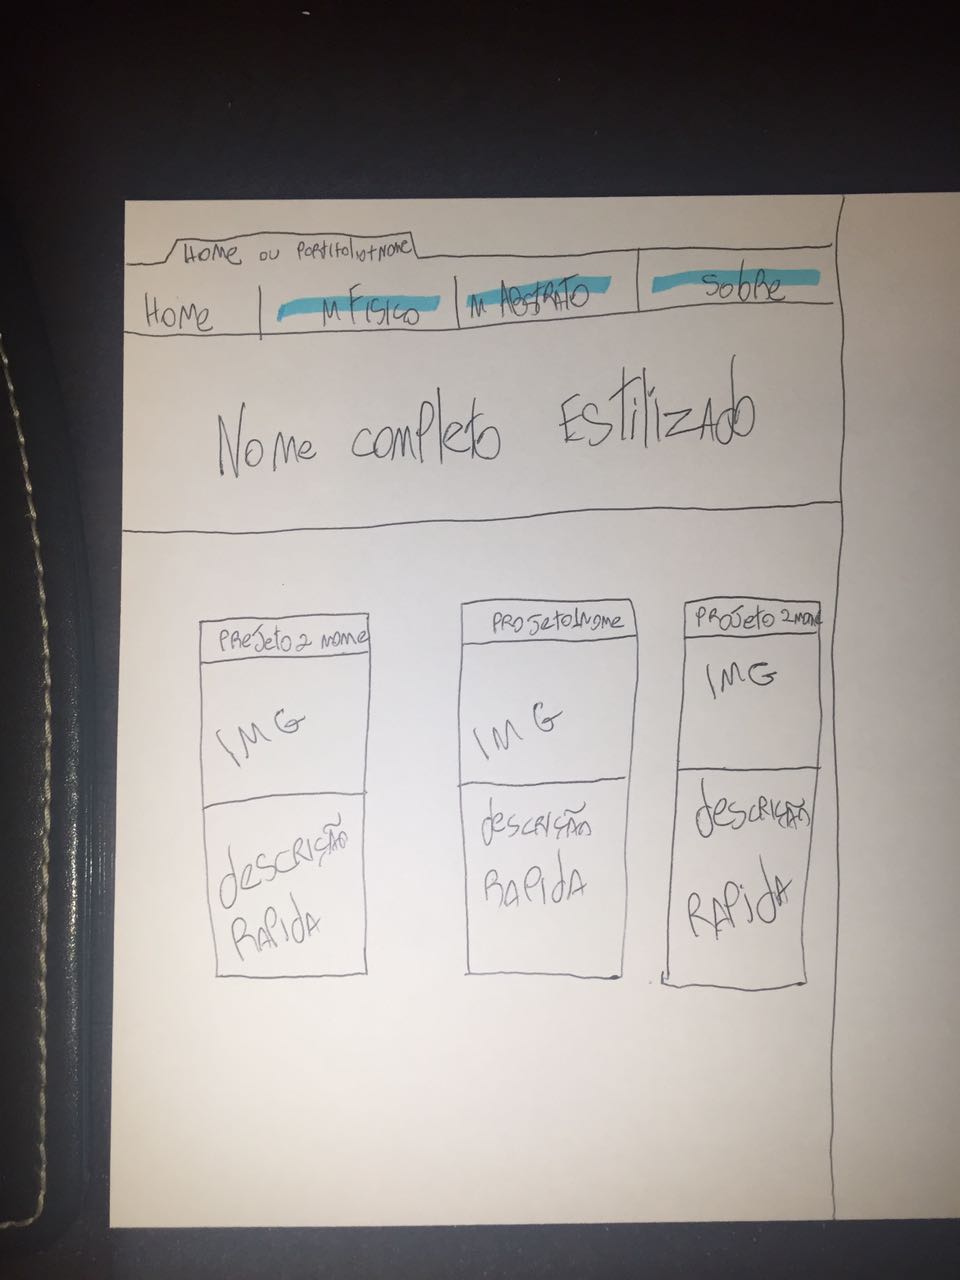 HOME OU PORTIFOLIO+NOME
HOME
M FISICO
M ABSTRATO
SOBRE
NOME COMPLETO ESTILIZADO
PREJETO2 NOME
IMG
DESCRIÇÃO
RAPIDA
PROJETO1NOME
IMG
DESCRIÇÃO
RAPIDA
PROJETO 2NOME
IMG
DESCRIÇÃO
RAPIDA